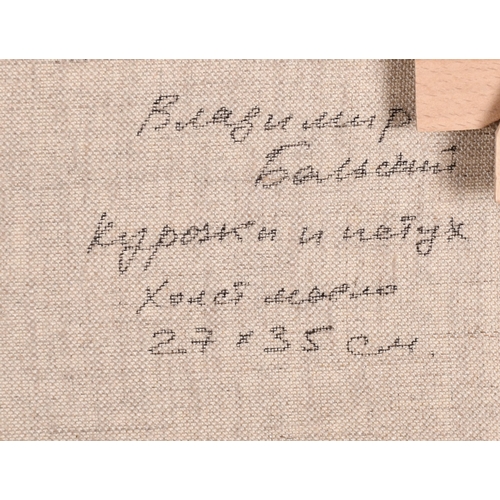 Владимир
Бальский
Курочки и петух
Холст масло
27 × 35 см.